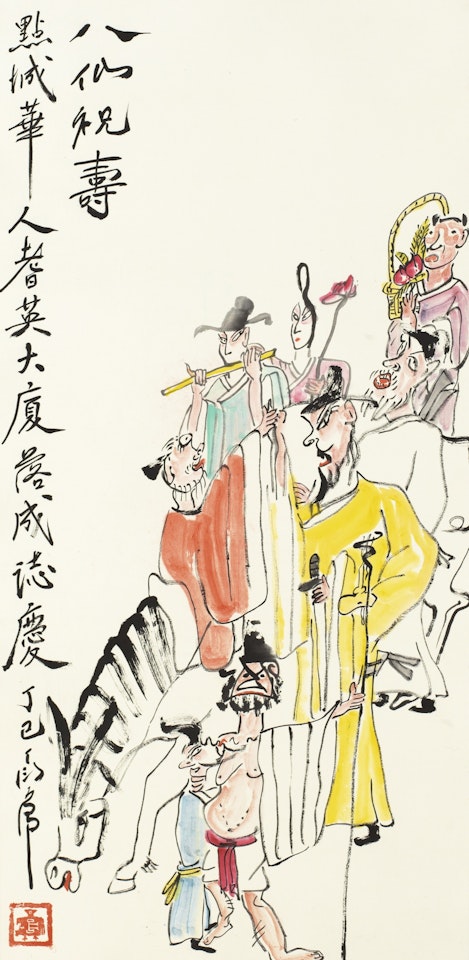 八仙祝壽
點城華人耆英大廈落成誌慶 丁巳 衍庸